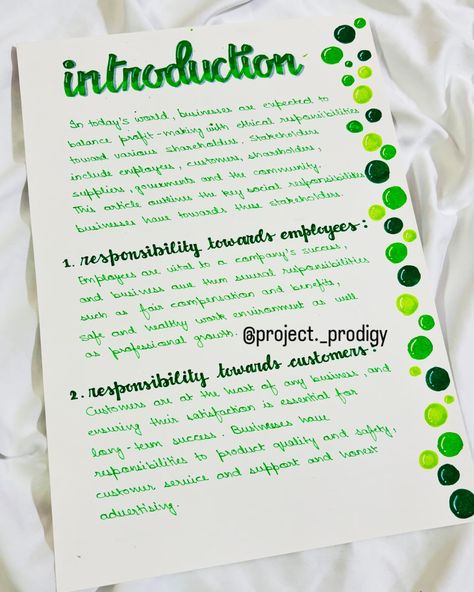 introduction
In today's world, businesses are expected to
balance profit-making with ethical responsibilities
toward various shareholders. Stakeholders
include employees, customers, shareholders,
suppliers, goverments and the community.
This article outlines the key social responsibilities
businesses have towards these stakeholders.
1. responsibility towards employees:
Employees are vital to a company's success,
and business owe them several responsibilities
such as fair compensation and benefits,
safe and healthy work environment as well
as professional growth.
@project._prodigy
2. responsibility towards customers:
Customers are at the heart of any business, and
ensuring their satisfaction is essential for
long-term success. Businesses have
responsibilities to product quality and safety,
customer service and support and honest
advertising.